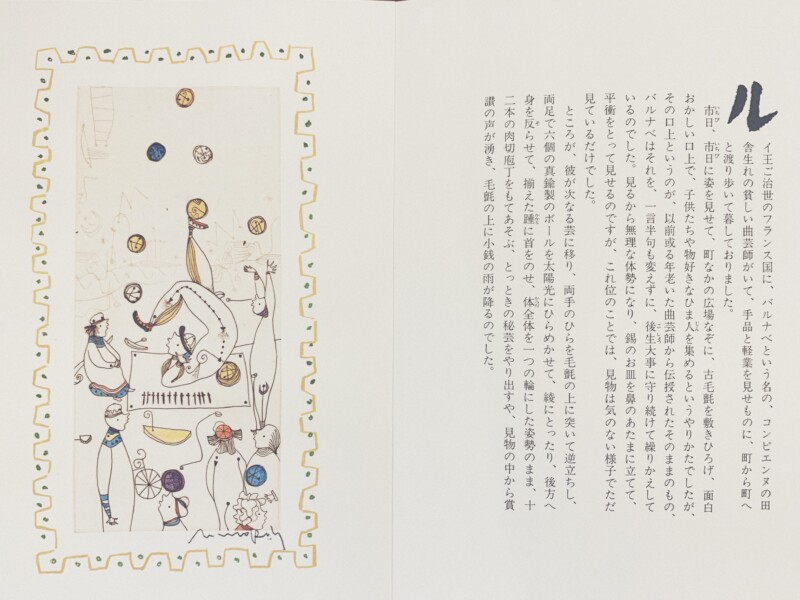 ルイ王ご治世のフランス国に、バルナベという名の、コンピエンヌの田
舎生れの貧しい曲芸師がいて、手品と軽業を見せものに、町から町へ
と渡り歩いて暮しておりました。
市日、市日に姿を見せて、町なかの広場なぞに、古毛氈を敷きひろげ、面白
おかしい口上で、子供たちや物好きなひま人を集めるというやりかたでしたが、
その口上というのが、以前或る年老いた曲芸師から伝授されたそのままのもの、
バルナベはそれを、一言半句も変えずに、後生大事に守り続けて繰りかえして
いるのでした。見るから無理な体勢になり、錫のお皿を鼻のあたまに立てて、
平衡をとって見せるのですが、これ位のことでは、見物は気のない様子でただ
見ているだけでした。
ところが、彼が次なる芸に移り、両手のひらを毛氈の上に突いて逆立ちし、
両足で六個の真鍮製のボールを太陽光にひらめかせて、綾にとったり、後方へ
身を反らせて、揃えた踵に首をのせ、体全体を一つの輪にした姿勢のまま、十
二本の肉切庖丁をもてあそぶ、とっときの秘芸をやり出すや、見物の中から賞
讃の声が湧き、毛氈の上に小銭の雨が降るのでした。